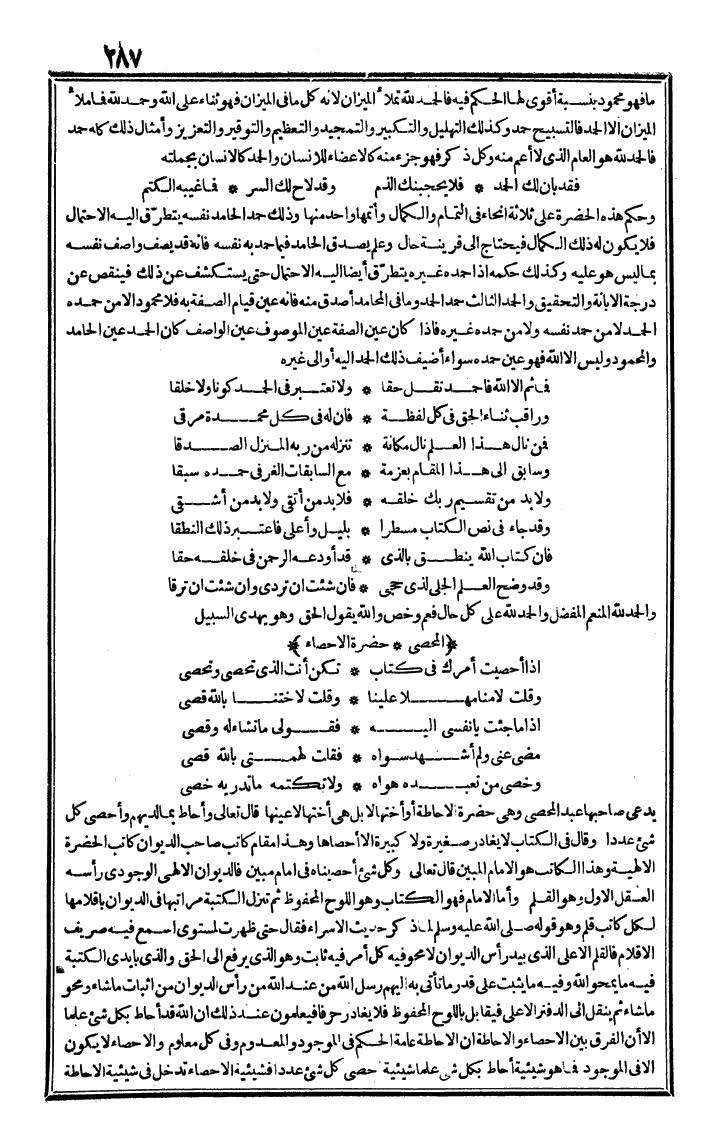 ٢٨٧
ما فهو محمود بنسبة أقوى لها الحكم فيه فالحمد لله تملأ الميزان لانه كل ما فى الميزان فهو ثناء على الله وحمد لله فاملأ
الميزان الا الحمد فالتسبيح حمد وكذلك التهليل والتكبير والتمجيد والتعظيم والتوقير والتعزيز وأمثال ذلك كله حمد
فالحمد لله هو العام الذى لا أعم منه وكل ذكر فهو جزء منه كالاعضاء للانسان والحمد كالانسان بجملته
فقد بان لك الحمد * فلا يحجبنك الذم وقد لاح لك السر * فما غيبه الكتم
وحكم هذه الحضرة على ثلاثة انحاء فى التمام والكمال وأتمها واحد منها وذلك حمد الحامد نفسه يتطرق اليه الاحتمال
فلا يكون له ذلك الكمال فيحتاج الى قرينة حال وعلم يصدق الحامد فيما حمد به نفسه فانه قد يصف واصف نفسه
بما ليس هو عليه وكذلك حكمه اذا حمده غيره يتطرق أيضا اليه الاحتمال حتى يستكشف عن ذلك فينقص عن
درجة الابانة والتحقيق والحمد الثالث حمد الحمد وما فى المحامد أصدق منه فانه عين قيام الصفة به فلا محمود الا من حمده
الحمد لا من حمد نفسه ولا من حمده غيره فاذا كان عين الصفة عين الموصوف عين الواصف كان الحمد عين الحامد
والمحمود وليس الا الله فهو عين حمده سواء أضيف ذلك الحمد اليه أو الى غيره
فما ثم الا الله فاحمد تقل حقا * ولا تعتبر فى الحمد كونا ولا خلقا
وراقب ثناء الحق فى كل لفظة * فان له فى كل محمدة مرقى
فمن نال هذا العلم نال مكانة * تنزله من ربه المنزل الصدقا
وسابق الى هذا المقام بعزمة * مع السابقات الغر فى حمده سبقا
ولا بد من تقسيم ربك خلقه * فلا بد من أتقى ولا بد من أشقى
وقد جاء فى نص الكتاب مسطرا * بليل وأعلى فاعتبر ذلك النطقا
فان كتاب الله ينطق بالذى * قد أودعه الرحمن فى خلقه حقا
وقد وضح العلم الجلى لذى حجى * فان شئت ان تردى وان شئت ان ترقا
والحمد لله المنعم المفضل والحمد لله على كل حال فعم وخص والله يقول الحق وهو يهدى السبيل
﴿المحصى * حضرة الاحصاء﴾
اذا أحصيت أمرك فى كتاب * تكن أنت الذى تحصى وتحصى
وقلت لامنا مهلا علينا * وقلت لاختنا بالله قصى
اذا ما جئت يا نفسى اليه * فقولى ما تشاء له وقصى
مضى عنى ولم أشهد سواه * فقلت لهمتى بالله قصى
وخصى من تعبده هواه * ولا تكتمه ما تدريه خصى
يدعى صاحبها عبد المحصى وهى حضرة الاحاطة أو أختها لا بل هى أختها لا عينها قال تعالى وأحاط بما لديهم وأحصى كل
شئ عددا وقال فى الكتاب لا يغادر صغيرة ولا كبيرة الا أحصاها وهذا مقام كاتب صاحب الديوان كاتب الحضرة
الالهية وهذا الكاتب هو الامام المبين قال تعالى وكل شئ أحصيناه فى امام مبين فالديوان الالهى الوجودى رأسه
العقل الاول وهو القلم وأما الامام فهو الكتاب وهو اللوح المحفوظ ثم تنزل الكتبة مراتبها فى الديوان باقلامها
لكل كاتب قلم وهو قوله صلى الله عليه وسلم لما ذكر حديث الاسراء فقال حتى ظهرت لمستوى اسمع فيه صريف
الاقلام فالقلم الاعلى الذى بيد رأس الديوان لا محو فيه كل أمر فيه ثابت وهو الذى يرفع الى الحق والذى بايدى الكتبة
فيه ما يمحو الله وفيه ما يثبت على قدر ما تأتى به اليهم رسل الله من عند الله من رأس الديوان من اثبات ما شاء ومحو
ما شاء ثم ينقل الى الدفتر الاعلى فيقابل باللوح المحفوظ فلا يغادر حرفا فيعلمون عند ذلك ان الله قد أحاط بكل شئ علما
الا أن الفرق بين الاحصاء والاحاطة ان الاحاطة عامة الحكم فى الموجود والمعدوم وفى كل معلوم والاحصاء لا يكون
الا فى الموجود فما هو شيئية أحاط بكل شئ علما شيئية حصى كل شئ عددا فشيئية الاحصاء تدخل فى شيئية الاحاطة